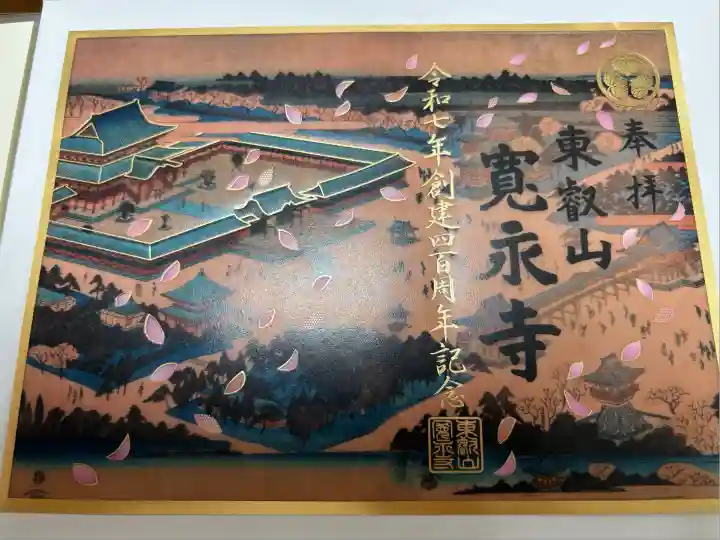 奉拝
東叡山
寛永寺
令和七年創建四百周年記念
東叡山
寛永寺